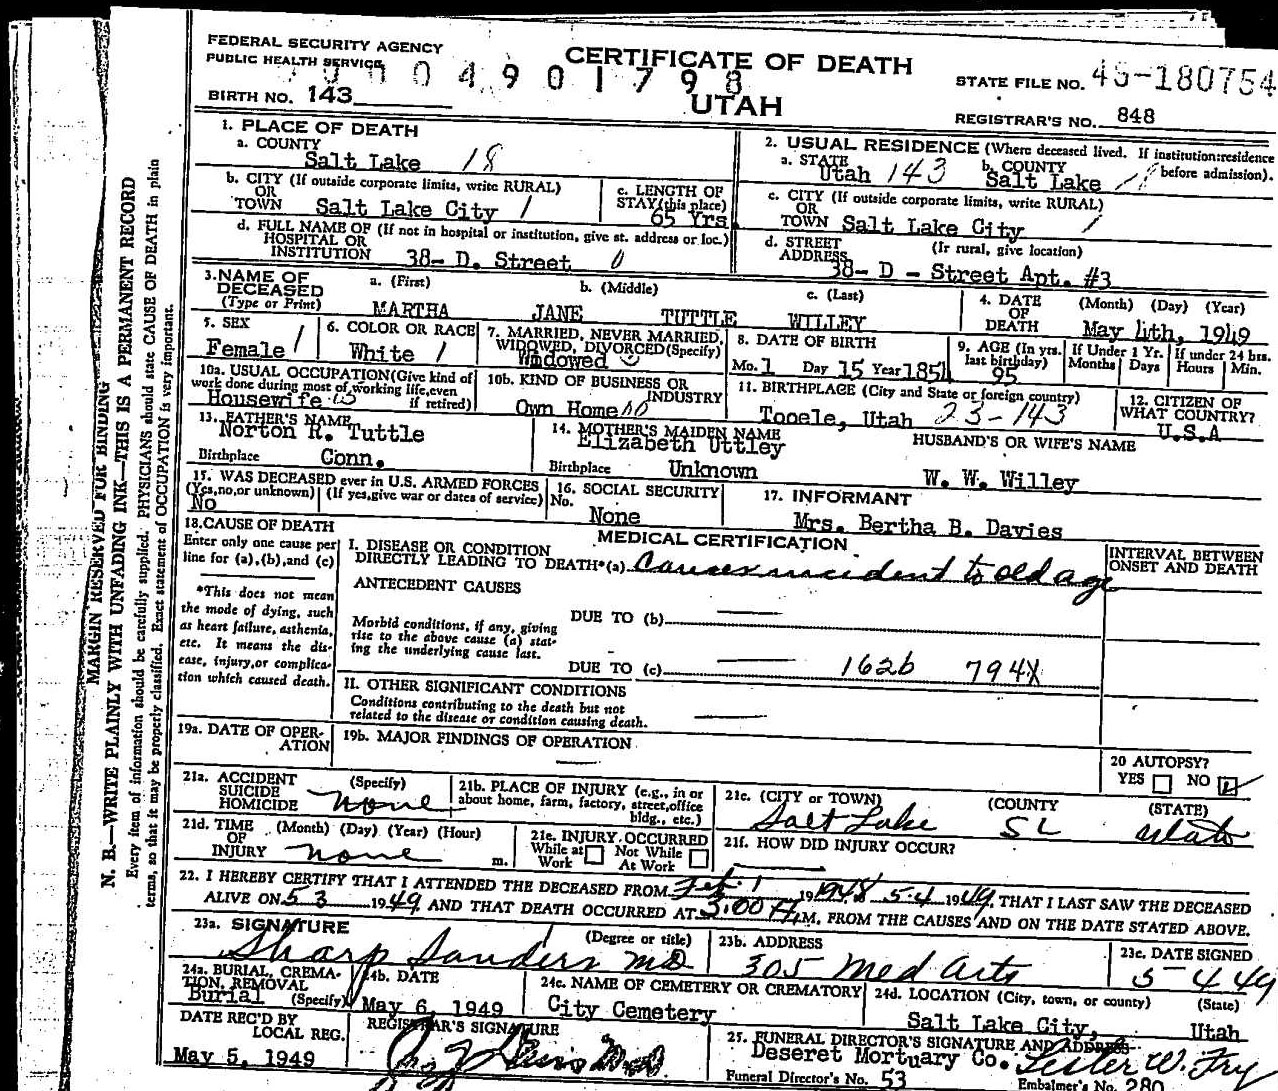 FEDERAL SECURITY AGENCY
PUBLIC HEALTH SERVICE
CERTIFICATE OF DEATH
UTAH
004901798
STATE FILE NO. 45-180754
BIRTH NO. 143
REGISTRAR'S NO. 848
1. PLACE OF DEATH
a. COUNTY
Salt Lake 18
2. USUAL RESIDENCE (Where deceased lived. If institution:residence before admission).
a. STATE Utah 143
b. COUNTY Salt Lake 18
b. CITY (If outside corporate limits, write RURAL)
OR
TOWN Salt Lake City 1
c. LENGTH OF
STAY (this place)
65 Yrs.
c. CITY (If outside corporate limits, write RURAL)
OR
TOWN Salt Lake City 1
d. FULL NAME OF (If not in hospital or institution, give st. address or loc.)
HOSPITAL OR
INSTITUTION 38- D. Street 0
d. STREET (If rural, give location)
ADDRESS
38- D - Street Apt. #3
3. NAME OF
DECEASED
(Type or Print)
a. (First) b. (Middle) c. (Last)
MARTHA JANE TUTTLE WILLEY
4. DATE
OF
DEATH
(Month) (Day) (Year)
May 4th, 1949
5. SEX
Female 1
6. COLOR OR RACE
White 1
7. MARRIED, NEVER MARRIED,
WIDOWED, DIVORCED (Specify)
Widowed
8. DATE OF BIRTH
Mo. 1 Day 15 Year 1854
9. AGE (In yrs.
last birthday)
95
If Under 1 Yr.
Months Days
If under 24 hrs.
Hours Min.
10a. USUAL OCCUPATION (Give kind of
work done during most of working life, even
if retired)
Housewife
10b. KIND OF BUSINESS OR
INDUSTRY
Own Home
11. BIRTHPLACE (City and State or foreign country)
Tooele, Utah 23-143
12. CITIZEN OF
WHAT COUNTRY?
U.S.A
13. FATHER'S NAME
Norton R. Tuttle
Birthplace Conn.
14. MOTHER'S MAIDEN NAME
Elizabeth Uttley
Birthplace Unknown
HUSBAND'S OR WIFE'S NAME
W. W. Willey
15. WAS DECEASED ever in U.S. ARMED FORCES
(Yes,no,or unknown) (If yes,give war or dates of service)
No
16. SOCIAL SECURITY
No.
None
17. INFORMANT
Mrs. Bertha B. Davies
18. CAUSE OF DEATH
Enter only one cause per
line for (a),(b),and (c)
*This does not mean
the mode of dying, such
as heart failure, asthenia,
etc. It means the dis-
ease, injury,or complica-
tion which caused death.
MEDICAL CERTIFICATION
I. DISEASE OR CONDITION
DIRECTLY LEADING TO DEATH*(a) Causes incident to old age
INTERVAL BETWEEN
ONSET AND DEATH
ANTECEDENT CAUSES
DUE TO (b)
Morbid conditions, if any, giving
rise to the above cause (a) stat-
ing the underlying cause last.
DUE TO (c) 162b 794X
II. OTHER SIGNIFICANT CONDITIONS
Conditions contributing to the death but not
related to the disease or condition causing death.
19a. DATE OF OPER-
ATION
19b. MAJOR FINDINGS OF OPERATION
20 AUTOPSY?
YES NO
21a. ACCIDENT (Specify)
SUICIDE
HOMICIDE none
21b. PLACE OF INJURY (e.g., in or
about home, farm, factory, street,office
bldg., etc.)
21c. (CITY or TOWN) (COUNTY (STATE)
Salt Lake SL Utah
21d. TIME (Month) (Day) (Year) (Hour)
OF
INJURY none m.
21e. INJURY OCCURRED
While at Work
Not While At Work
21f. HOW DID INJURY OCCUR?
22. I HEREBY CERTIFY THAT I ATTENDED THE DECEASED FROM Feb. 1 19 1948 5-4 1949 THAT I LAST SAW THE DECEASED
ALIVE ON 5 3 1949 AND THAT DEATH OCCURRED AT 3:00 A.M. FROM THE CAUSES AND ON THE DATE STATED ABOVE.
23a. SIGNATURE (Degree or title)
Sharp Sanders MD
23b. ADDRESS
305 Med Arts
23c. DATE SIGNED
5 4 49
24a. BURIAL, CREMA-
TION, REMOVAL
(Specify)
Burial
24b. DATE
May 6, 1949
24c. NAME OF CEMETERY OR CREMATORY
City Cemetery
24d. LOCATION (City, town, or county) (State)
Salt Lake City, Utah
DATE REC'D BY
LOCAL REG.
May 5, 1949
REGISTRAR'S SIGNATURE
25. FUNERAL DIRECTOR'S SIGNATURE AND ADDRESS
Deseret Mortuary Co. Lester W. Fry
Funeral Director's No. 53
Embalmer's No. 280
MARGIN RESERVED FOR BINDING
N. B.—WRITE PLAINLY WITH UNFADING INK—THIS IS A PERMANENT RECORD
Every item of information should be carefully supplied. PHYSICIANS should state CAUSE OF DEATH in plain
terms, so that it may be properly classified. Exact statement of OCCUPATION is very important.